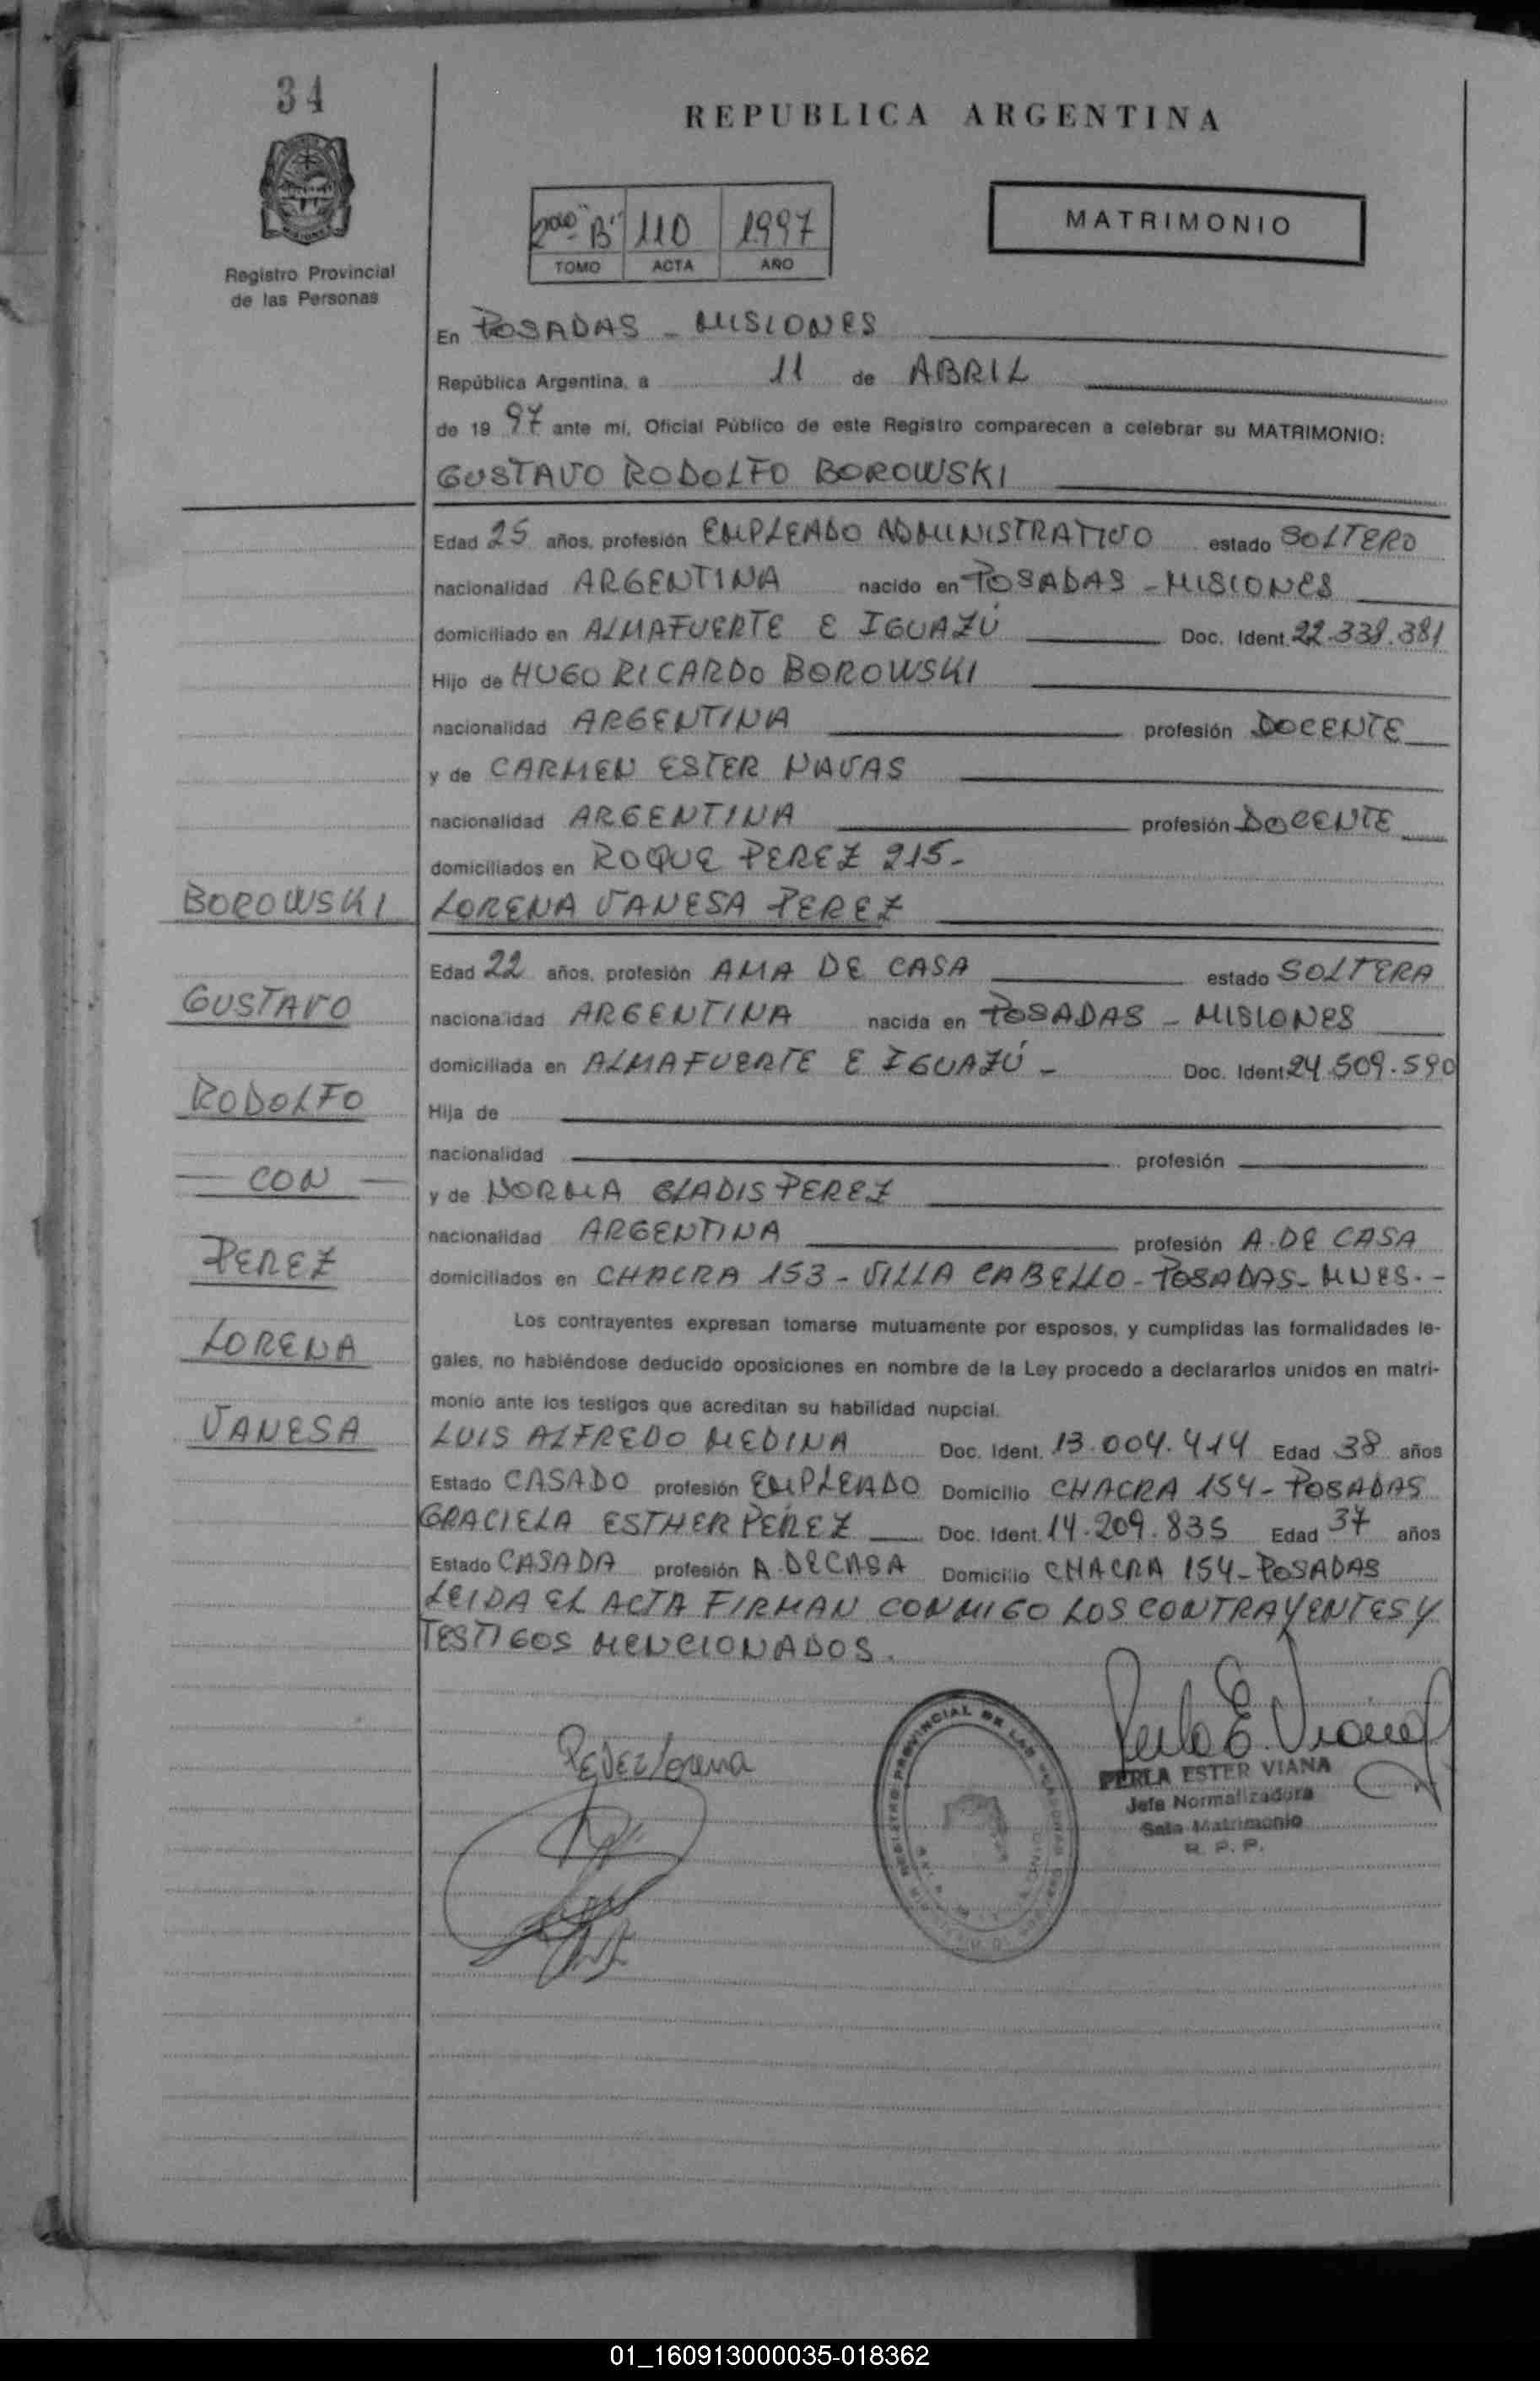 34
REPUBLICA ARGENTINA
2do "B" 110 1997
TOMO ACTA AÑO
MATRIMONIO
Registro Provincial
de las Personas
En POSADAS - MISIONES
República Argentina, a 11 de ABRIL
de 19 97 ante mí, Oficial Público de este Registro comparecen a celebrar su MATRIMONIO:
GUSTAVO RODOLFO BOROWSKI
Edad 25 años, profesión EMPLEADO ADMINISTRATIVO estado SOLTERO
nacionalidad ARGENTINA nacido en POSADAS - MISIONES
domiciliado en ALMAFUERTE E IGUAZÚ Doc. Ident. 22.338.381
Hijo de HUGO RICARDO BOROWSKI
nacionalidad ARGENTINA profesión DOCENTE
y de CARMEN ESTER NAVAS
nacionalidad ARGENTINA profesión DOCENTE
domiciliados en ROQUE PEREZ 215-
BOROWSKI
LORENA VANESA PEREZ
Edad 22 años, profesión AMA DE CASA estado SOLTERA
GUSTAVO
nacionalidad ARGENTINA nacida en POSADAS - MISIONES
domiciliada en ALMAFUERTE E IGUAZÚ - Doc. Ident. 24.509.590
RODOLFO
Hija de
nacionalidad profesión
CON
y de NORMA GLADIS PEREZ
nacionalidad ARGENTINA profesión A. DE CASA
PEREZ
domiciliados en CHACRA 153 - VILLA CABELLO - POSADAS - MNES. -
Los contrayentes expresan tomarse mutuamente por esposos, y cumplidas las formalidades le-
LORENA
gales, no habiéndose deducido oposiciones en nombre de la Ley procedo a declararlos unidos en matri-
monio ante los testigos que acreditan su habilidad nupcial.
VANESA
LUIS ALFREDO MEDINA Doc. Ident. 13.004.414 Edad 38 años
Estado CASADO profesión EMPLEADO Domicilio CHACRA 154 - POSADAS
GRACIELA ESTHER PEREZ Doc. Ident. 14.209.835 Edad 37 años
Estado CASADA profesión A. DE CASA Domicilio CHACRA 154 - POSADAS
LEIDA EL ACTA FIRMAN CONMIGO LOS CONTRAYENTES Y
TESTIGOS MENCIONADOS.
Perez Lorena
Perla E. Viana
PERLA ESTER VIANA
Jefa Normalizadora
Sala Matrimonio
R. P. P.
REGISTRO PROVINCIAL DE LAS PERSONAS
01_160913000035-018362